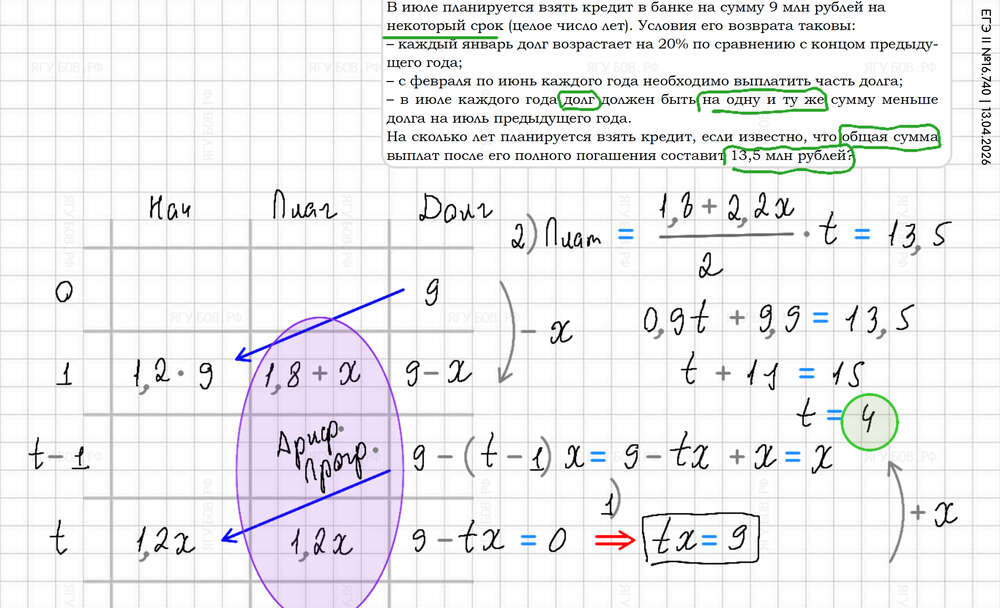 В июле планируется взять кредит в банке на сумму 9 млн рублей на
некоторый срок (целое число лет). Условия его возврата таковы:
– каждый январь долг возрастает на 20% по сравнению с концом предыду-
щего года;
– с февраля по июнь каждого года необходимо выплатить часть долга;
– в июле каждого года долг должен быть на одну и ту же сумму меньше
долга на июль предыдущего года.
На сколько лет планируется взять кредит, если известно, что общая сумма
выплат после его полного погашения составит 13,5 млн рублей?
ЕГЭ II №16.740 | 13.04.2026
Нач Плат Долг
0 9
- x
1 1,2·9 1,8+x 9-x
Ариф.
Прогр.
t-1 9-(t-1)x=9-tx+x=x
t 1,2x 1,2x 9-tx=0 1) ⇒ tx=9
+x
2) Плат = (1,8+2,2x)/2 · t = 13,5
0,9t + 9,9 = 13,5
t + 11 = 15
t = 4
ЯГУБОВ.РФ